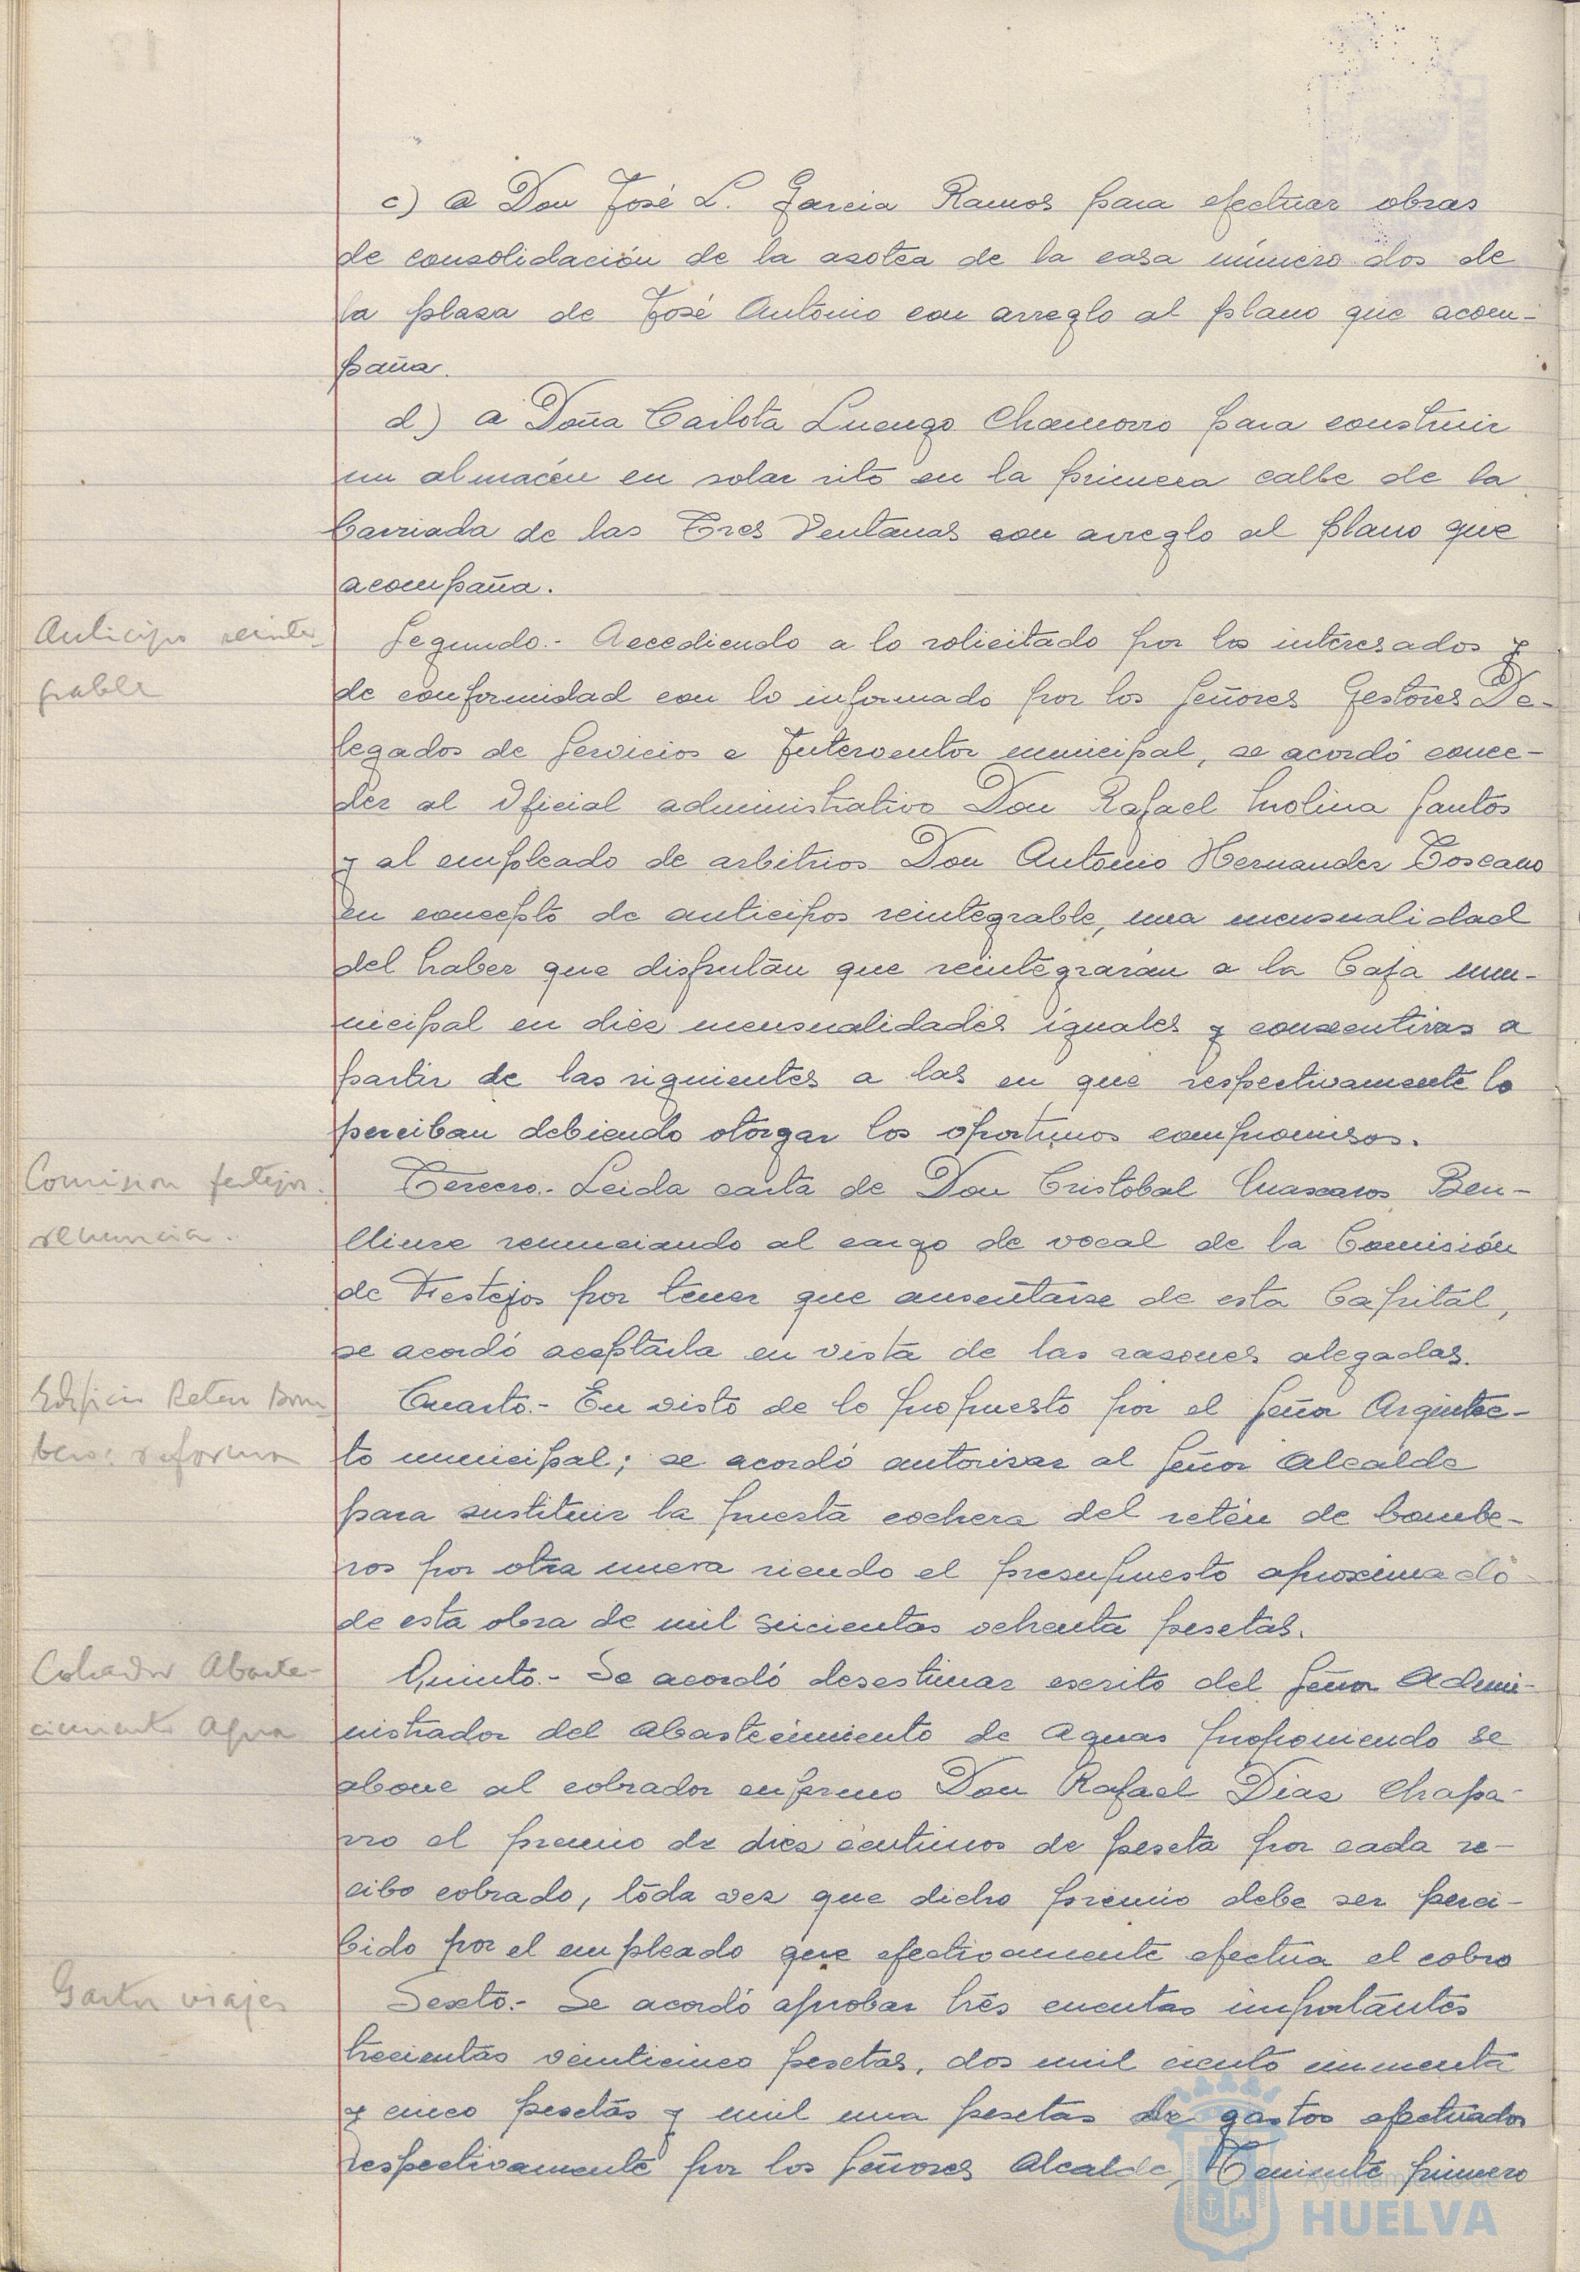 c) a Don José L. Garcia Ramos para efectuar obras
de consolidación de la azotea de la casa número dos de
la plaza de José Antonio con arreglo al plano que acom-
paña.
d) a Doña Carlota Luengo Chamorro para construir
un almacén en solar sito en la primera calle de la
barriada de las Tres Ventanas con arreglo al plano que
acompaña.
Anticipo reinte-
grable
Segundo.- Accediendo a lo solicitado por los interesados y
de conformidad con lo informado por los Señores Gestores De-
legados de Servicios e Interventor municipal, se acordó conce-
der al Oficial administrativo Don Rafael Molina Santos
y al empleado de arbitrios Don Antonio Hernandez Toscano
en concepto de anticipos reintegrable, una mensualidad
del haber que disfrutan que reintegrarán a la Caja mu-
nicipal en diez mensualidades iguales y consecutivas a
partir de las siguientes a las en que respectivamente lo
perciban debiendo otorgar los oportunos compromisos.
Comision festejos.
renuncia.
Tercero.- Leida carta de Don Cristobal Mascaros Ben-
lliure renunciando al cargo de vocal de la Comisión
de Festejos por tener que ausentarse de esta Capital,
se acordó aceptarla en vista de las razones alegadas.
Edificio Reten Bom-
beros: reforma
Cuarto.- En visto de lo propuesto por el Señor Arquitec-
to municipal; se acordó autorizar al Señor Alcalde
para sustituir la puerta cochera del retén de bombe-
ros por otra nueva siendo el presupuesto aproximado
de esta obra de mil seicientas ochenta pesetas.
Cobrador Abaste-
cimiento Agua
Quinto.- Se acordó desestimar escrito del Señor Admi-
nistrador del Abastecimiento de Aguas proponiendo se
abone al cobrador enfermo Don Rafael Diaz Chapa-
rro el premio de diez centimos de peseta por cada re-
cibo cobrado, toda vez que dicho premio debe ser perci-
bido por el empleado que efectivamente efectúa el cobro
Gastos viajes
Sexto.- Se acordó aprobar trés cuentas importantes
trecientas veinticinco pesetas, dos mil ciento cincuenta
y cinco pesetas y mil una pesetas de gastos efectuados
respectivamente por los Señores Alcalde, Teniente primero
Ayuntamiento de
HUELVA